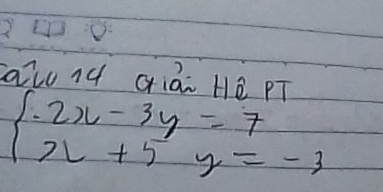 Câu 14 Giải Hệ PT
{ 2x - 3y = 7
x + 5y = -3